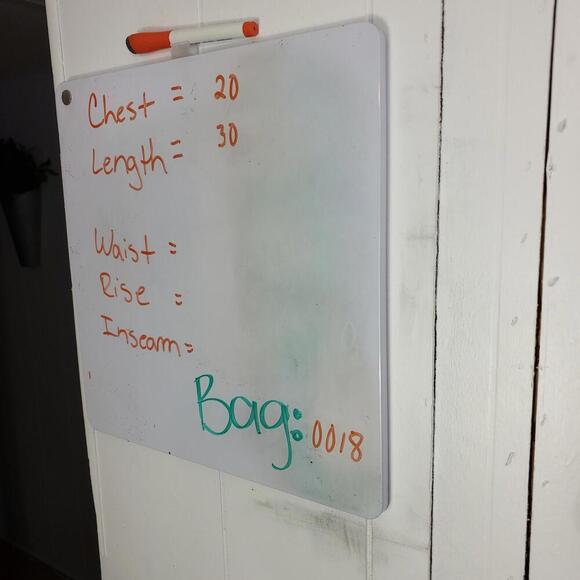 Chest = 20
Length = 30
Waist =
Rise =
Inseam =
Bag: 0018